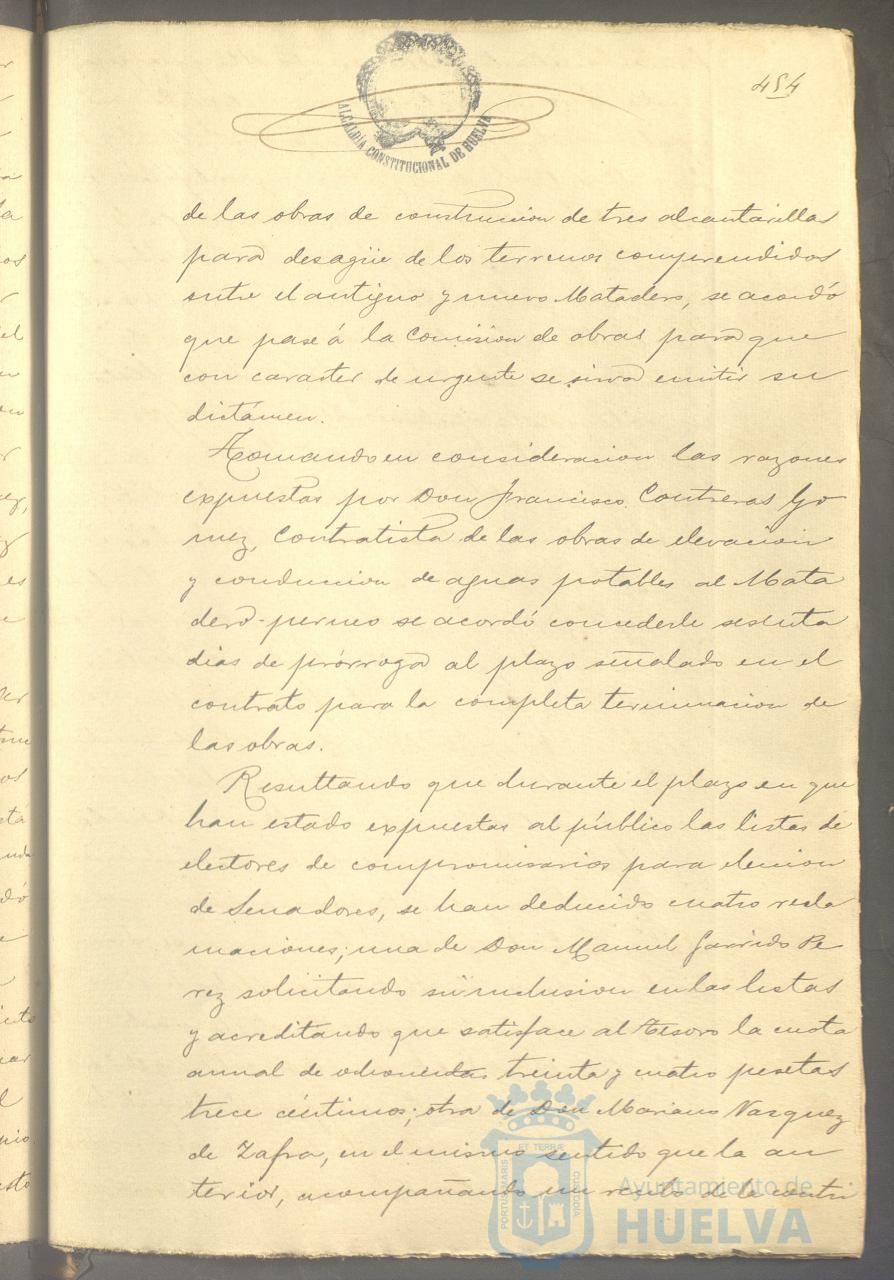 454
ALCALDÍA CONSTITUCIONAL DE HUELVA
de las obras de construccion de tres alcantarillas
para desagüe de los terrenos comprendidos
entre el antiguo y nuevo Matadero, se acordó
que pase á la Comision de obras para que
con caracter de urgente se sirva emitir su
dictámen.
Tomando en consideracion las razones
expuestas por Don Francisco Contreras Go
mez, Contratista de las obras de elevacion
y conduccion de aguas potables al Mata
dero-perneo se acordó concederle sesenta
dias de prórroga al plazo señalado en el
contrato para la completa terminacion de
las obras.
Resultando que durante el plazo en que
han estado expuestas al público las listas de
electores de compromisarios para eleccion
de Senadores, se han deducido cuatro recla
maciones; una de Don Manuel Garrido Pe
rez solicitando su inclusion en las listas
y acreditando que satisface al Tesoro la cuota
annal de ochocientas treinta y cuatro pesetas
trece céntimos; otra de Don Mariano Vazquez
de Zafra, en el mismo sentido que la an
terior, acompañando un recibo de la contri
PORTUS MARIS ET TERRÆ CUSTODIA
Ayuntamiento de
HUELVA